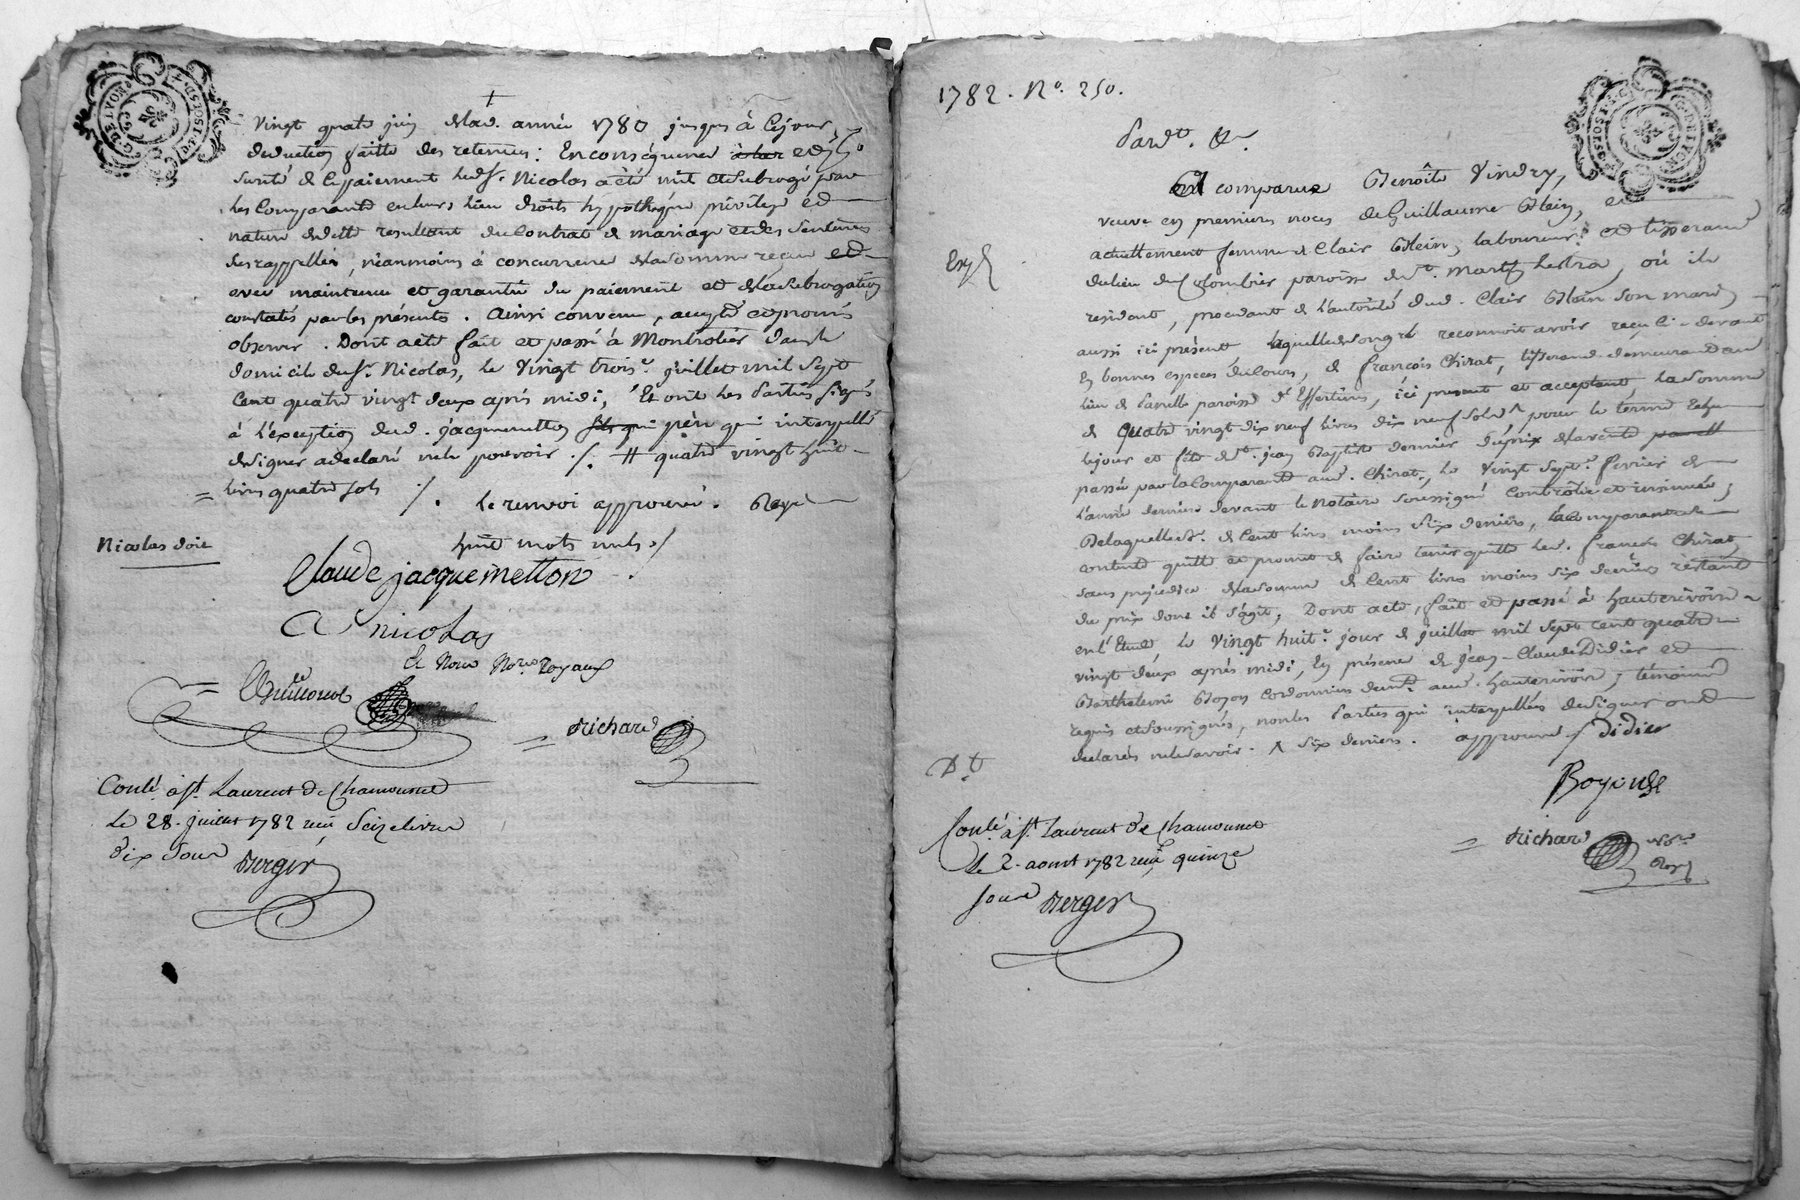 Vingt quatre juin de lad. année 1780 jusques à ce jour,
deduction faitte des retenues: En consequence et
sureté de ce paiement led. Sr. Nicolas a été mit et subrogé par
les Comparants en leurs lieu droits hypotheque privilege et
nature de dette resultant du Contrat de mariage et des Sentences
sus rappellés, néanmoins à concurrence de la somme reçue et
avec maintenue et garantie du paiement et de la subrogation
constatés par les présentes. Ainsi convenu, accepté et promis
observer. Dont acte fait et passé à Montrotier dans le
domicile du Sr. Nicolas, le vingt trois.e juillet mil Sept
Cent quatre vingt deux aprés midi, Et ont les Parties signés
à l'exception dud. jacquemetton père qui interpellé
de signer a declaré ne le pouvoir ./. # quatre vingt huit
livres quatre sols ./.
le renvoi approuvé. Rayé
huit mots nuls ./.
Nicolas doit
Claude jacquemetton
C nicolas
Et Nous Nores Royaux
Richard
Conlé à St. Laurent De Chamousset
Le 28. juillet 1782 reçu Seize livres
dix sous Berger
1782. No. 250.
Pardt. &c.
Est comparue Benoite Vindry,
veuve en premieres noces de Guillaume Blein, et
actuellement femme de Clair Blein, laboureur et tisserand
Exp.
du lieu du Colombier paroisse de St. Martin Lestra, où ils
resident, procedant de l'autorité dud. Clair Blein son mari
aussi ici présent laquelle de son gré reconnoit avoir reçu ci-devant
en bonnes especes du Cours, de françois Chirat, tisserand demeurant au
lieu de paroisse d'Essertines, ici present et acceptant, la somme
de Quatre vingt dix neuf livres dix neuf sols ^ pour le terme echu
le jour et fête de St. jean Baptiste dernier du prix de la vente
passée par la Comparante aud. Chirat, le vingt sept.e fevrier de
l'année derniere devant le Notaire soussigné Controlée et insinuée;
De laquelle so. de Cent livres moins six deniers, la Comparante
contente quitte et promet de faire tenir quitte led. françois Chirat,
sans prejudice de la somme de Cent livres moins six deniers restant
du prix dont il s'agit, Dont acte, fait et passé à hauterivoire
en l'Etude le vingt huit.e jour de juillet mil Sept cent quatre
vingt deux aprés midi, En présence de jean-Claude Didier et
Barthelemi Boyon Cordonniers demts. aud. hauterivoire, témoins
requis et soussignés, non les Parties qui interpellées de signer ont
declarés ne le savoir. ^ six deniers. approuvé Didier
Dt
Richard Nore
Roy.
Conlé à St. Laurent De Chamousset
Le 2. aoust 1782 reçu quinze
sous Berger